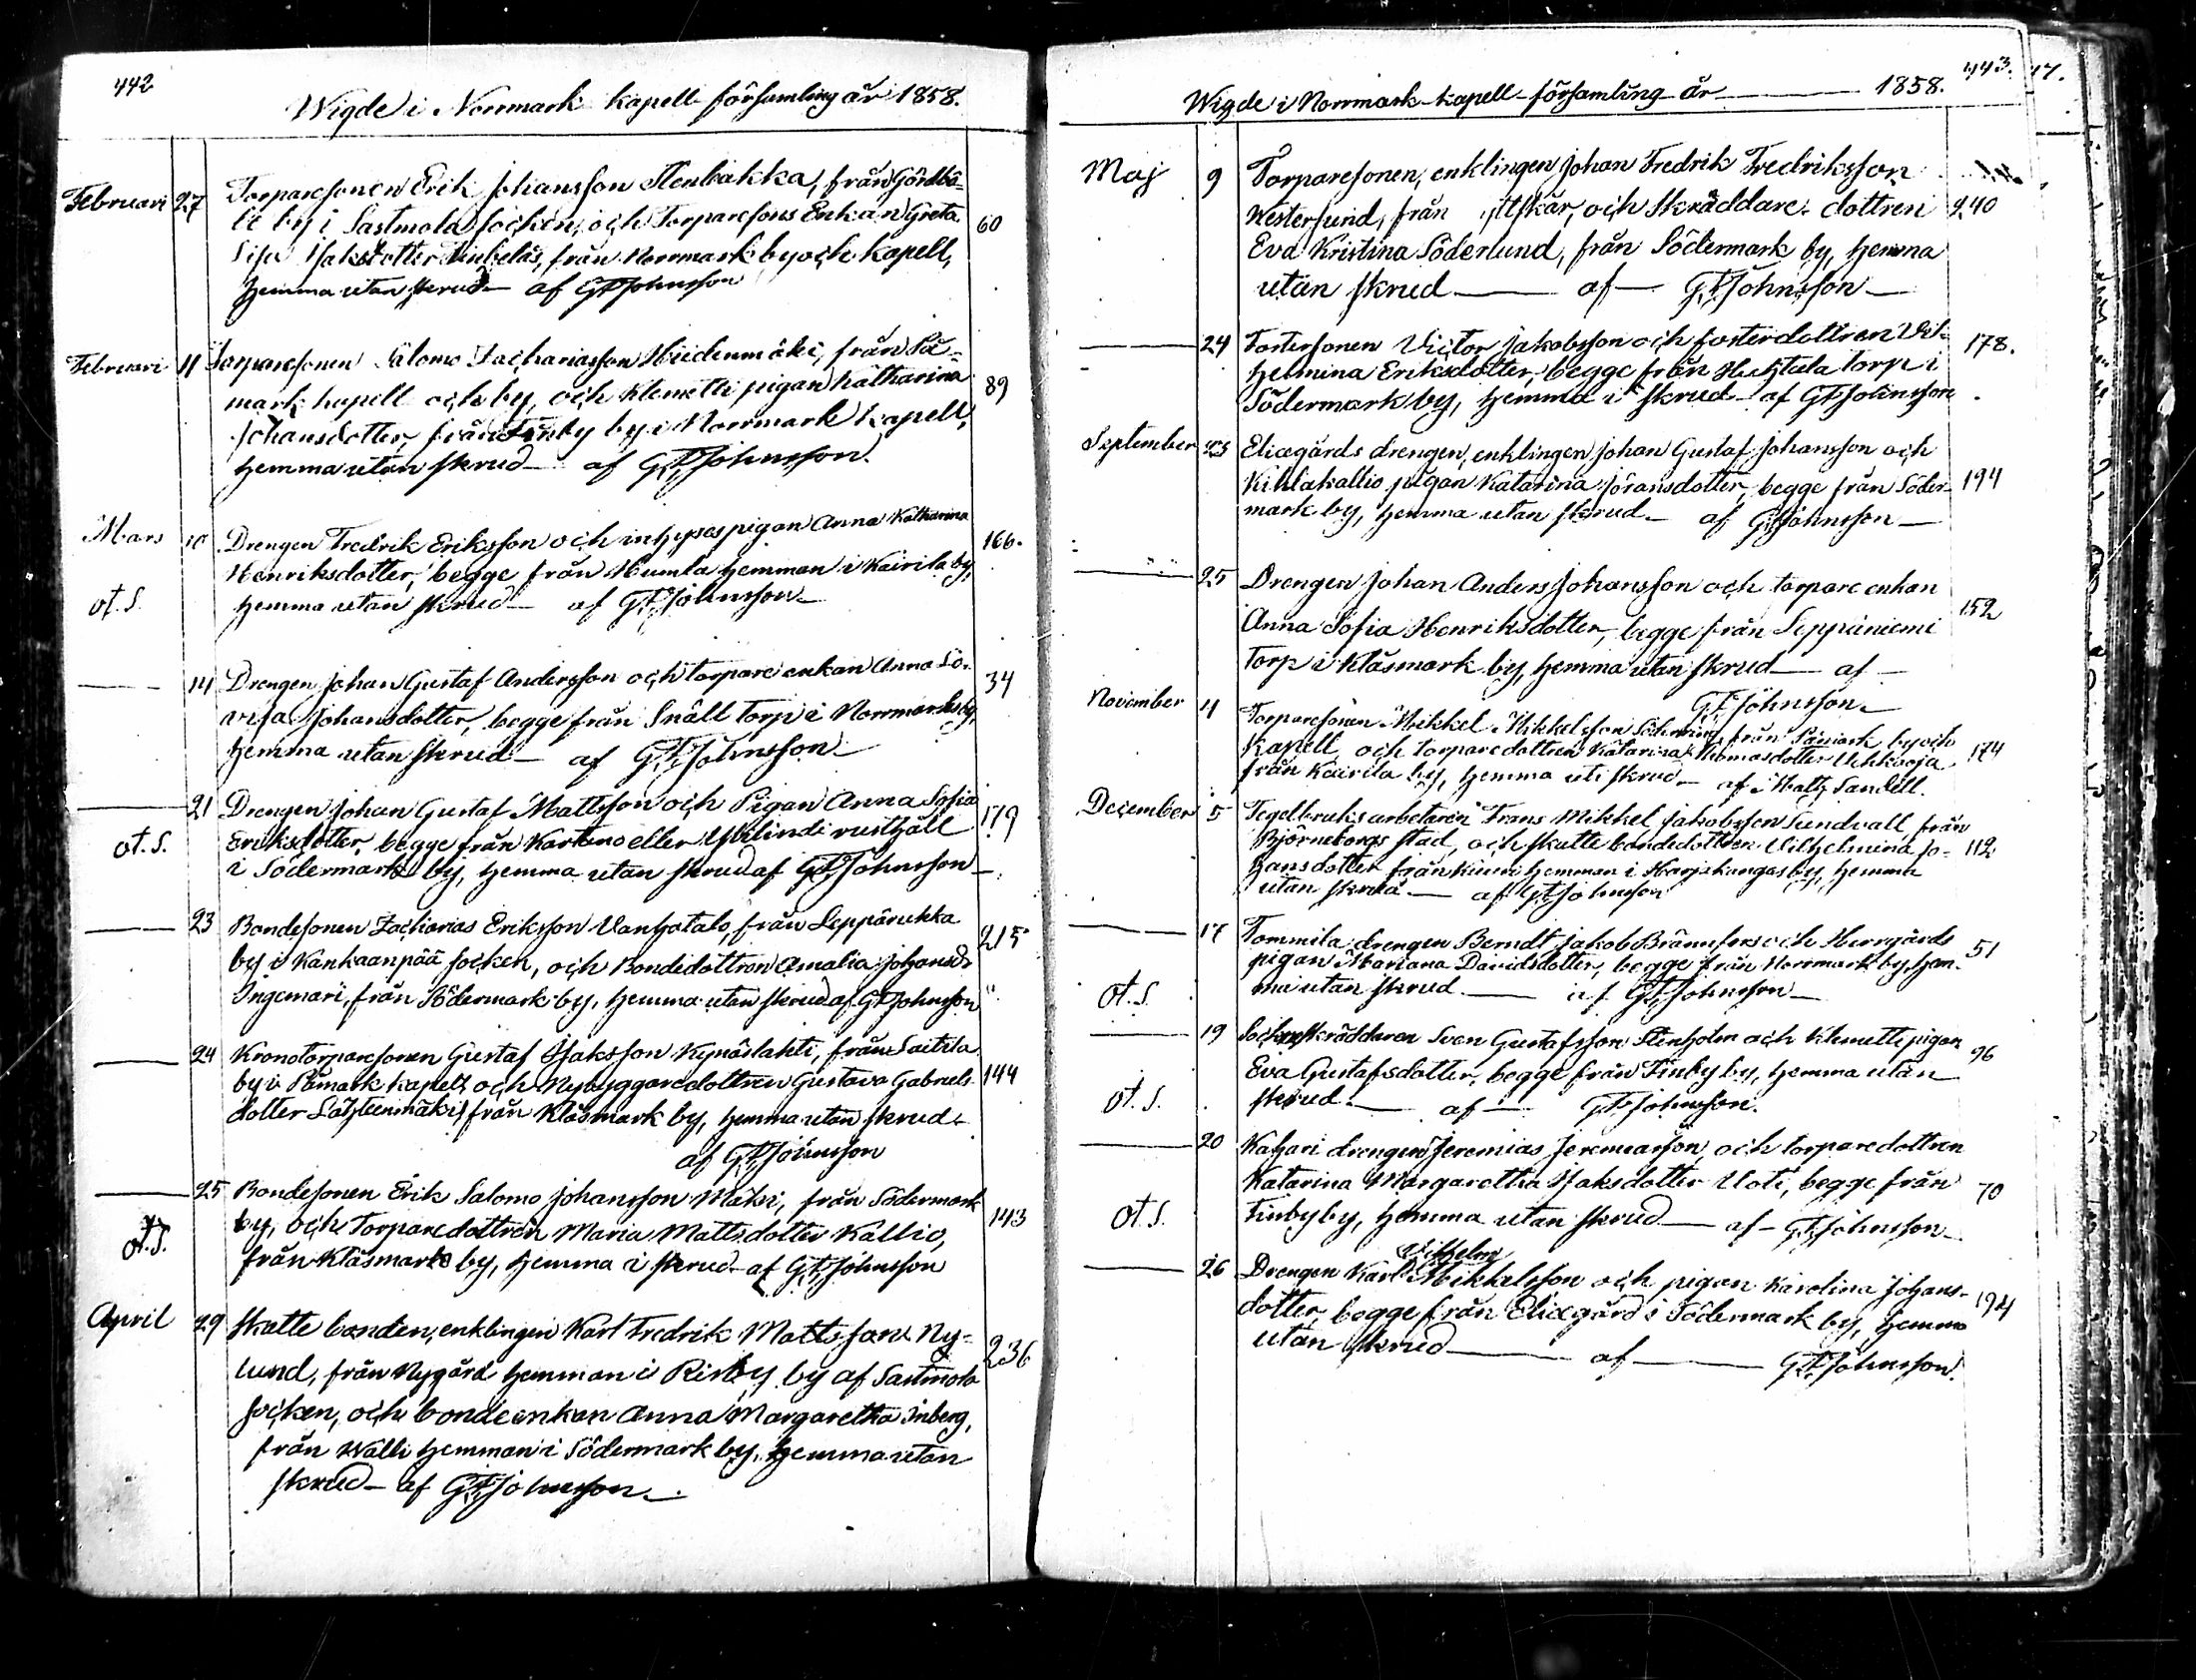 442
Wigde i Norrmark kapell församling år 1858.
Februari 27 Torparesonen Erik Johansson Stenbakka, från Gördbö-
le by i Sastmola socken, och Torparesons Enkan Greta 60
Lisa Isaksdotter från Norrmark by och kapell,
hemma utan skrud — af G F Johnsson
Februari 11 Torparesonen Salomo Zachariasson Hiidenmäki, från På-
mark kapell och by, och Klemetti pigan Katharina 89
Johansdotter, från Finby by i Norrmark kapell,
hemma utan skrud — af G F Johnsson.
Mars 10 Drengen Fredrik Eriksson och inhyses pigan Anna Katharina 166.
Henriksdotter, begge från Humla hemman i Kairila by,
ot. S. hemma utan skrud — af G F Johnsson —
— 14 Drengen Johan Gustaf Andersson och torpare enkan Anna Lo- 34
visa Johansdotter, begge från Snäll torp i Norrmarks by,
hemma utan skrud — af G F Johnsson —
— 21 Drengen Johan Gustaf Mattsson och Pigan Anna Sofia 179
ot. S. Eriksdotter, begge från Kartano eller rusthåll
i Södermark by, hemma utan skrud af G F Johnsson —
— 23 Bondesonen Zacharias Eriksson Vanhatalo, från Leppäruhka 215
by i Kankaanpää socken, och Bondedottren Amalia Johansdr
Ingemari, från Södermark by, hemma utan skrud af G F Johnsson
— 24 Kronotorparesonen Gustaf Isaksson Kynäslahti, från Laitila
by i Påmark kapell och Nybyggaredottren Gustava Gabriels- 144
dotter Lähteenmäki, från Klåsmark by, hemma utan skrud
af G F Johnsson
— 25 Bondesonen Erik Salomo Johansson Mäki, från Södermark
by, och Torparedottren Maria Mattsdotter Kallio, 143
ot. S. från Klåsmark by, hemma i skrud — af G F Johnsson
April 29 Skatte bonden, enklingen Karl Fredrik Mattsson Ny-
lund, från Nygård hemman i Risby by af Sastmola 236
socken, och bondeenkan Anna Margaretha Inberg,
från Wälli hemman i Södermark by, hemma utan
skrud — af G F Johnsson —
443.
Wigde i Norrmark kapell församling år — 1858.
Maj 9 Torparesonen, enklingen Johan Fredrik Fredriksson
Westersund, från och Skräddare dottren 240
Eva Kristina Söderlund, från Södermark by, hemma
utan skrud — af — G F Johnsson —
— 24 Fostersonen Victor Jakobsson och fosterdottren Vil- 178.
helmina Eriksdotter, begge från torp i
Södermark by, hemma i skrud — af G F Johnsson
September 23 Elicegårds drengen, enklingen Johan Gustaf Johansson och
Kihlakallio pigan Katarina Jöransdotter, begge från Söder- 194
mark by, hemma utan skrud — af G F Johnsson —
— 25 Drengen Johan Anders Johansson och torpare enkan
Anna Sofia Henriksdotter, begge från Leppäniemi 152
torp i Klåsmark by, hemma utan skrud — af —
G F Johnsson —
November 4 Torparesonen Mikkel Mikkelsson från Påmark by och
kapell, och torparedottren Katarina Thomasdotter Uhkooja 174
från Kairila by, hemma uti skrud — af Matth Sandell.
December 5 Tegelbruks arbetaren Frans Mikkel Jakobsson Sundvall från
Björneborgs stad, och skatte bondedottren Vilhelmina Jo- 112
hansdotter från hemman i Harjakangas by, hemma
utan skrud — af G F Johnsson
— 17 Tommila drengen Berndt Jakob Brännfors och Herrgårds 51
pigan Mariana Davidsdotter, begge från Norrmark by, hem-
ot. S. ma utan skrud — af G F Johnsson —
— 19 Sockneskräddaren Sven Gustafsson Stenholm och Klemetti pigan 96
Eva Gustafsdotter, begge från Finby by, hemma utan
ot. S. skrud — af — G F Johnsson.
— 20 Kahari drengen Jeremias Jeremiasson, och torparedottren
Katarina Margaretha Isaksdotter Uoti, begge från 70
ot. S. Finby by, hemma utan skrud — af — G F Johnsson —
Vilhelm
— 26 Drengen Karl Mikkelsson och pigan Karolina Johans-
dotter, begge från Elicegård i Södermark by, hemma 194
utan skrud — af — G F Johnsson.